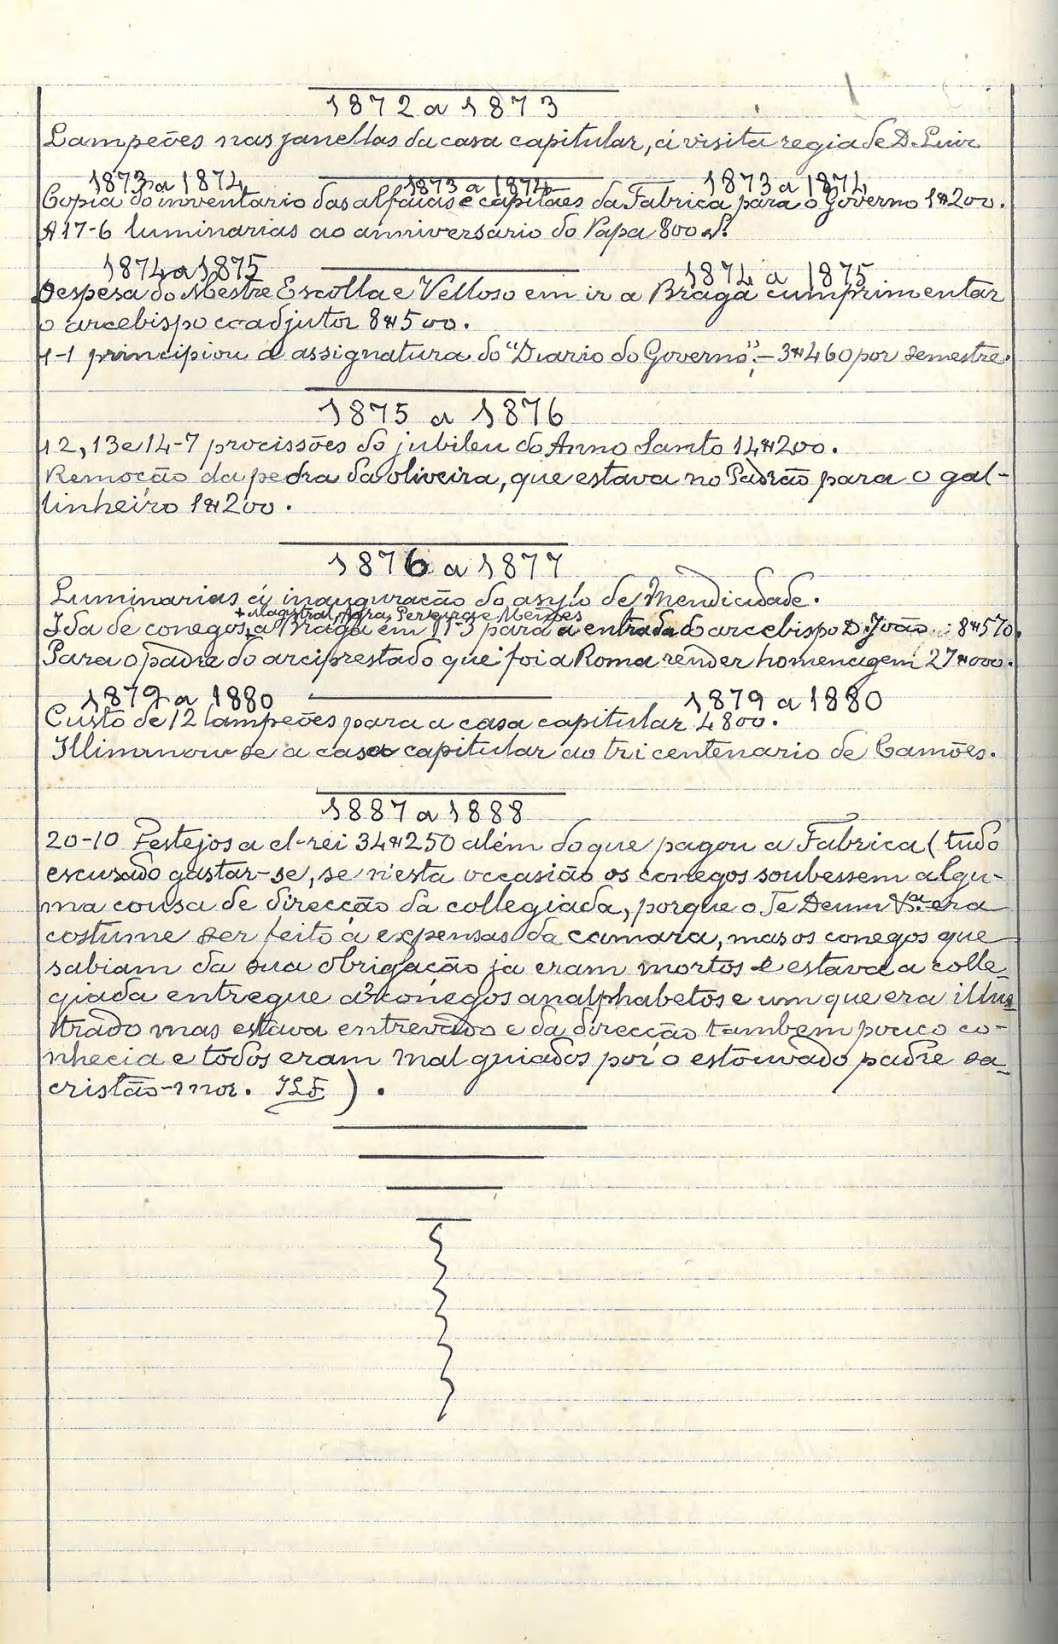 1872 a 1873
Lampeões nas janellas da casa capitular, á visita regia de D. Luiz
1873 a 1874 1873 a 1874 1873 a 1874
Copia do inventario das alfaias e capitaes da Fabrica para o Governo 1$200.
A 17-6 luminarias ao anniversario do Papa 800 rs.
1874 a 1875 1874 a 1875
Despesa do Mestre Escolla e Velloso em ir a Braga cumprimentar
o arcebispo coadjutor 8$500.
1-1 principiou a assignatura do "Diario do Governo", - 3$460 por semestre.
1875 a 1876
12, 13 e 14-7 procissões do jubileu do Anno Santo 14$200.
Remoção da pedra da oliveira, que estava no Padrão para o gal-
linheiro 1$200.
1876 a 1877
Luminarias á inauguração do asylo de Mendicidade.
+ Magistral, Agra, Pereira e Mendes
Ida de conegos + a Braga em 11-3 para a entrada do arcebispo D. João : 8$570.
Para o padre do arciprestado que foi a Roma render homenagem 27$000.
1879 a 1880 1879 a 1880
Custo de 12 lampeões para a casa capitular 4800.
Illiminou-se a casa capitular ao tricentenario de Camões.
1887 a 1888
20-10 Festejos a el-rei 34$250 além do que pagou a Fabrica (tudo
escusado gastar-se, se n'esta occasião os conegos soubessem algu-
ma cousa de direcção da collegiada, porque o Te Deum era
costume ser feito á expensas da camara, mas os conegos que
sabiam da sua obrigação ja eram mortos e estava a colle-
giada entregue a conegos analphabetos e um que era illus
trado mas estava entrevado e da direcção tambem pouco co-
nhecia e todos eram mal guiados por o estouvado padre sa-
cristão-mor. JLF ).